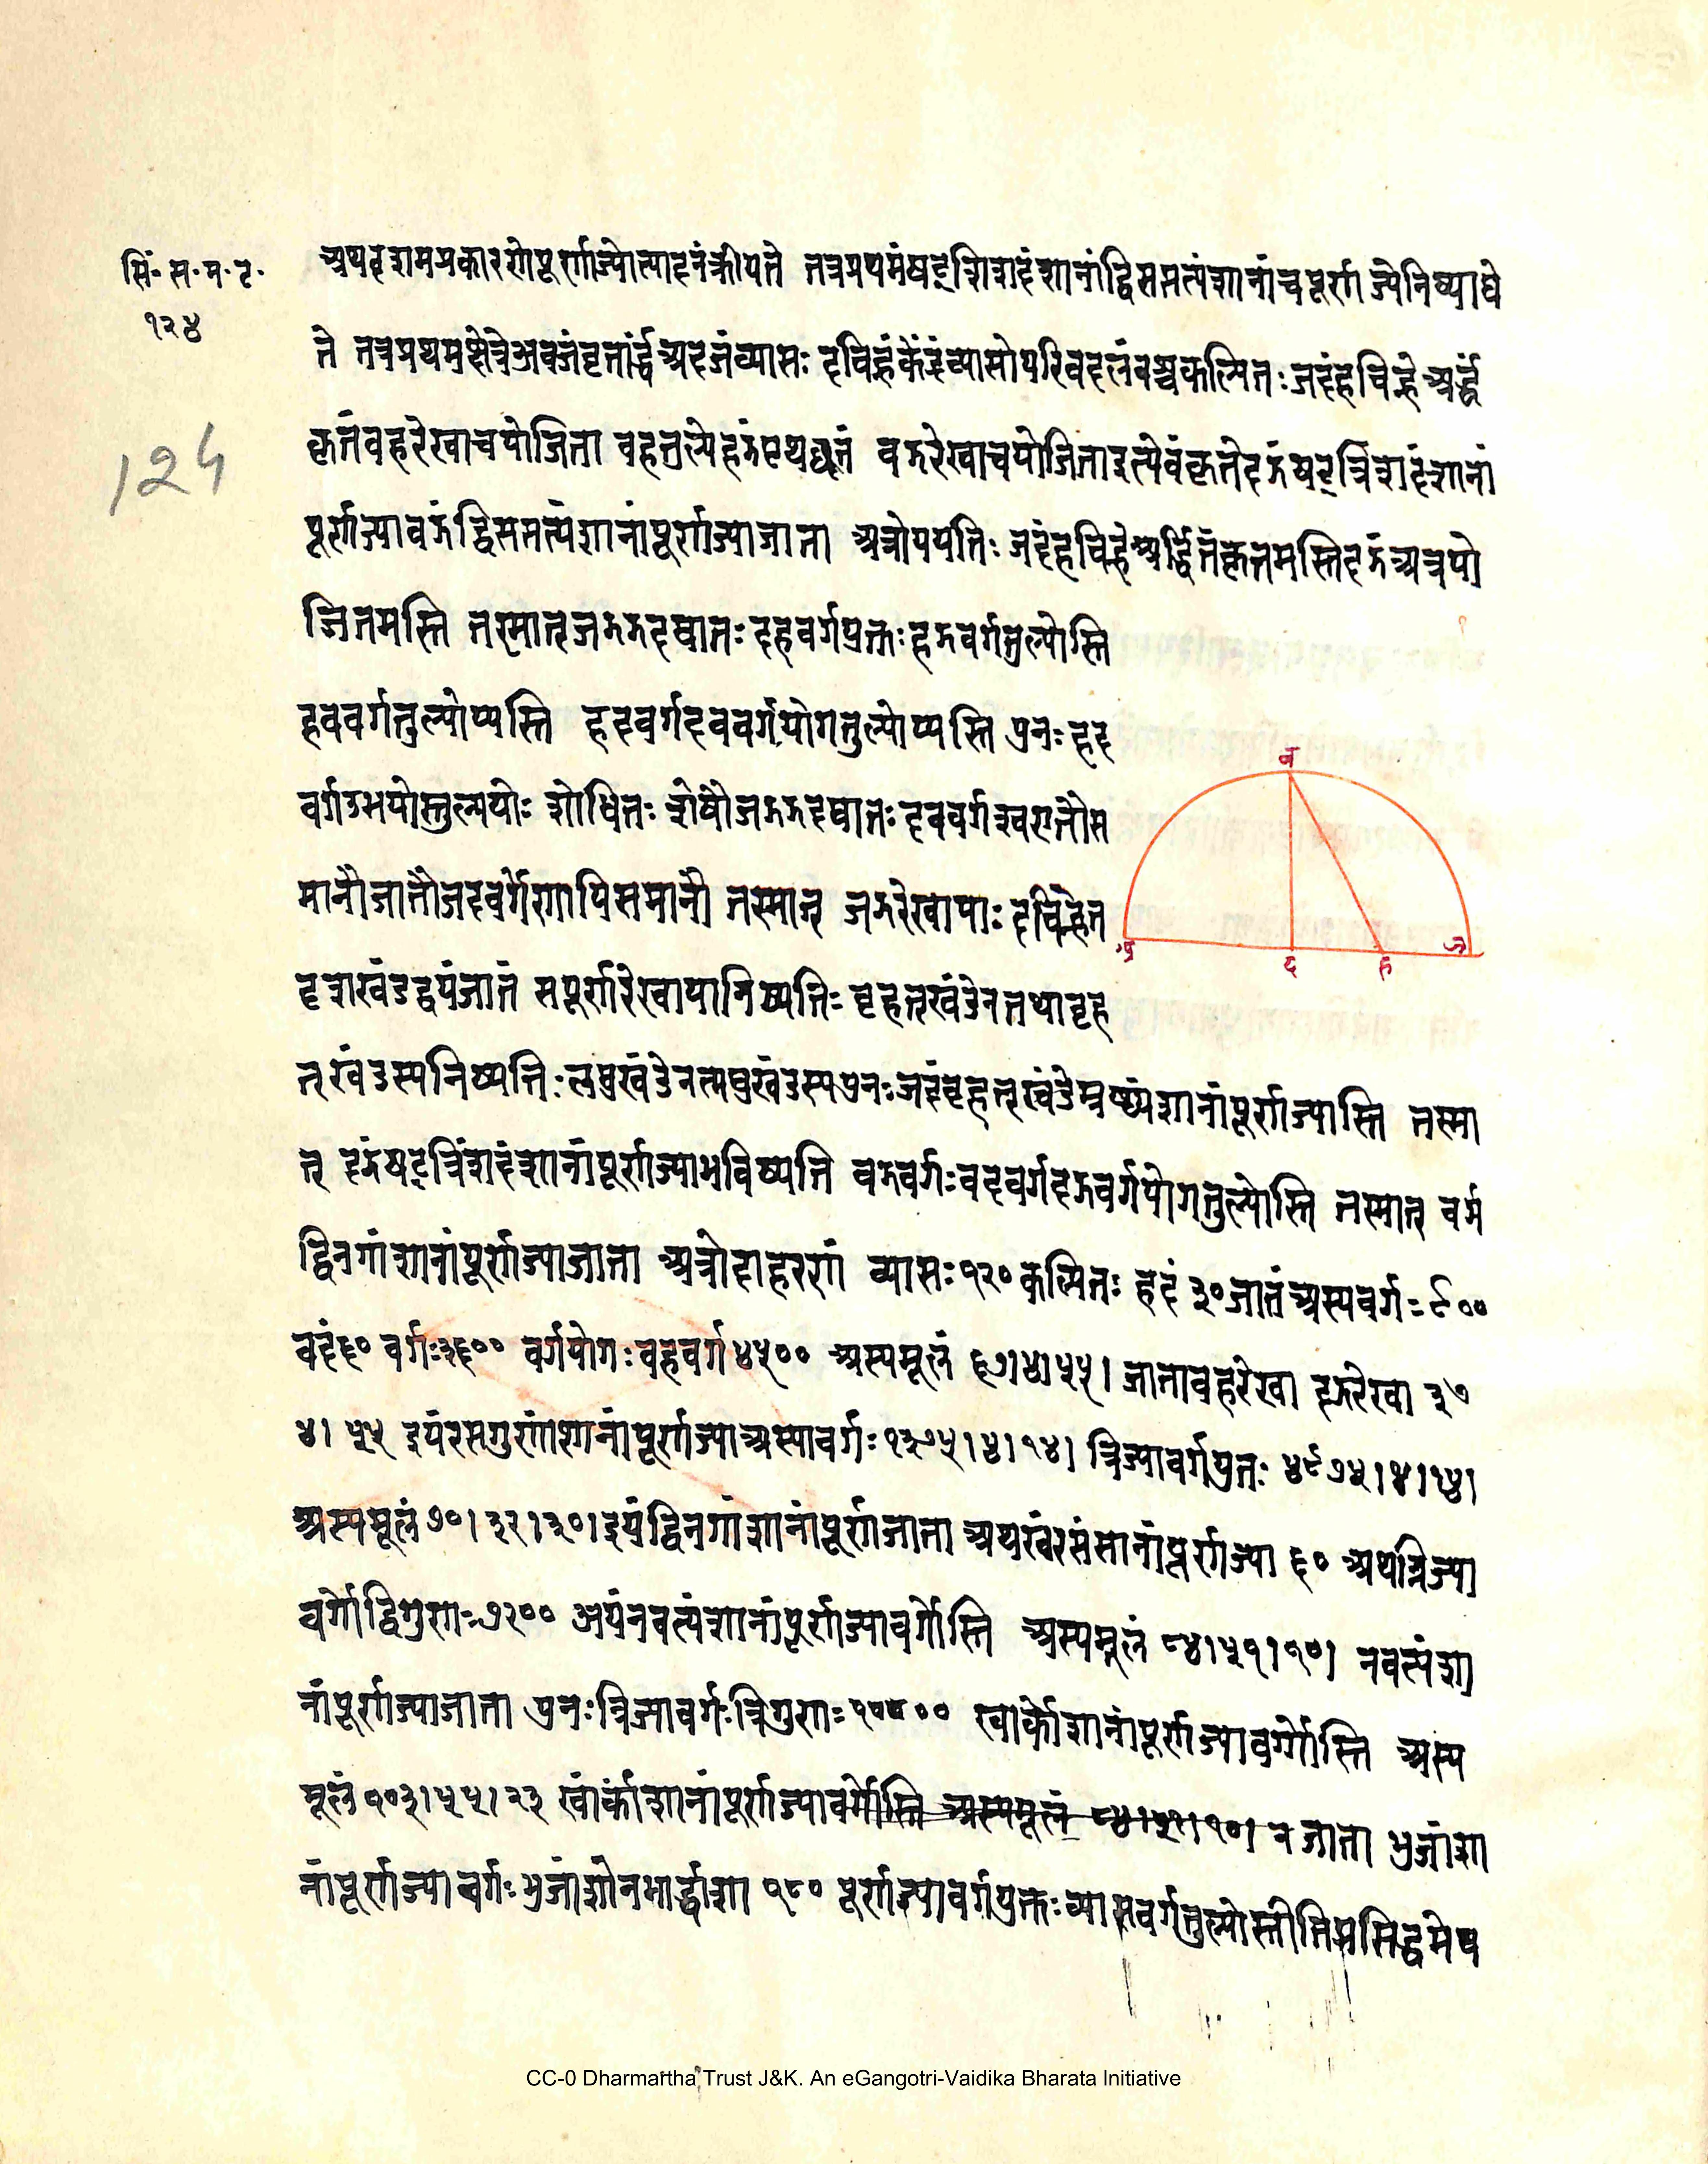 सिं॰ स॰ म॰ टृ॰
१२४
124
अथ दृशमप्रकारेण पूर्णज्योत्पादनं क्रीयते तत्र प्रथमं षट्त्रिंशदंशानां द्विसप्तत्यंशानां च पूर्णज्ये निष्पाद्ये
ते तत्र प्रथमक्षेत्रे अबजं वृत्तार्द्धं अदजं व्यासः दचिह्नं केंद्रं व्यासोपरि बदलंबश्च कल्पितः जदं हचिह्ने अर्द्धं
कृतं बहरेखा च योजिता बहतुल्ये हझं पृथक्कृतं बझरेखा च योजिता इत्येवं कृते दझं षट्त्रिंशदंशानां
पूर्णज्या बझं द्विसप्तत्यंशानां पूर्णज्या जाता अत्रोपपत्तिः जदं हचिह्ने अर्द्धितं कृतमस्ति दझं अत्र यो
जितमस्ति तस्मात् जझझदघातः दहवर्गयुक्तः हझवर्गतुल्योस्ति
हबवर्गतुल्योप्यस्ति हदवर्गदबवर्गयोगतुल्योप्यस्ति पुनः हद
वर्गउभयोस्तुल्ययोः शोधितः शेषौ जझझदघातः दबवर्गश्च एतौ स
मानौ जातौ जदवर्गेणापि समानौ तस्मात् जझरेखायाः दचिह्ने त
दृशखंडद्वयं जातं सपूर्णरेखाया निष्पत्तिः बृहत्खंडेन तथा बृह
त्खंडस्य निष्पत्तिः लघुखंडेन लघुखंडस्य पुनः जदं बृहत्खंडं षष्ट्यंशानां पूर्णज्यास्ति तस्मा
त् दझं षट्त्रिंशदंशानां पूर्णज्या भविष्यति बझवर्गः बदवर्गदझवर्गयोगतुल्योस्ति तस्मात् बझं
द्विनगांशानां पूर्णज्या जाता अत्रोदाहरणं व्यासः १२० कल्पितः हदं ३० जातं अस्य वर्गः ९००
बदं ६० वर्गः ३६०० वर्गयोगः बहवर्ग ४५०० अस्य मूलं ६७।४।५५। जाता बहरेखा दझरेखा ३७
४। ५५ इयं रसगुणांशानां पूर्णज्या अस्या वर्गः १३७५।४।१४। त्रिज्यावर्गयुतः ४९७५।४।१४।
अस्य मूलं ७०।३२।३०। इयं द्विनगांशानां पूर्णा जाता अथ खरसंसानां पूर्णज्या ६० अथ त्रिज्या
वर्गो द्विगुणः ७२०० अयं नवत्यंशानां पूर्णज्यावर्गोस्ति अस्य मूलं ८४।५१।१०। नवत्यंशा
नां पूर्णज्या जाता पुनः त्रिज्यावर्गः त्रिगुणः १०८०० खार्कांशानां पूर्णज्यावर्गोस्ति अस्य
मूलं १०३।५५।२३ खार्कांशानां पूर्णज्यावर्गोस्ति अस्य मूलं ८४।५१।१०। न जाता भुजांशा
नां पूर्णज्यावर्गः भुजांशोनभार्द्धांशा १८० पूर्णज्यावर्गयुक्तः व्यासवर्गतुल्योस्तीति प्रसिद्धमेव
ब
अ
द
ह
ज
CC-0 Dharmartha Trust J&K. An eGangotri-Vaidika Bharata Initiative